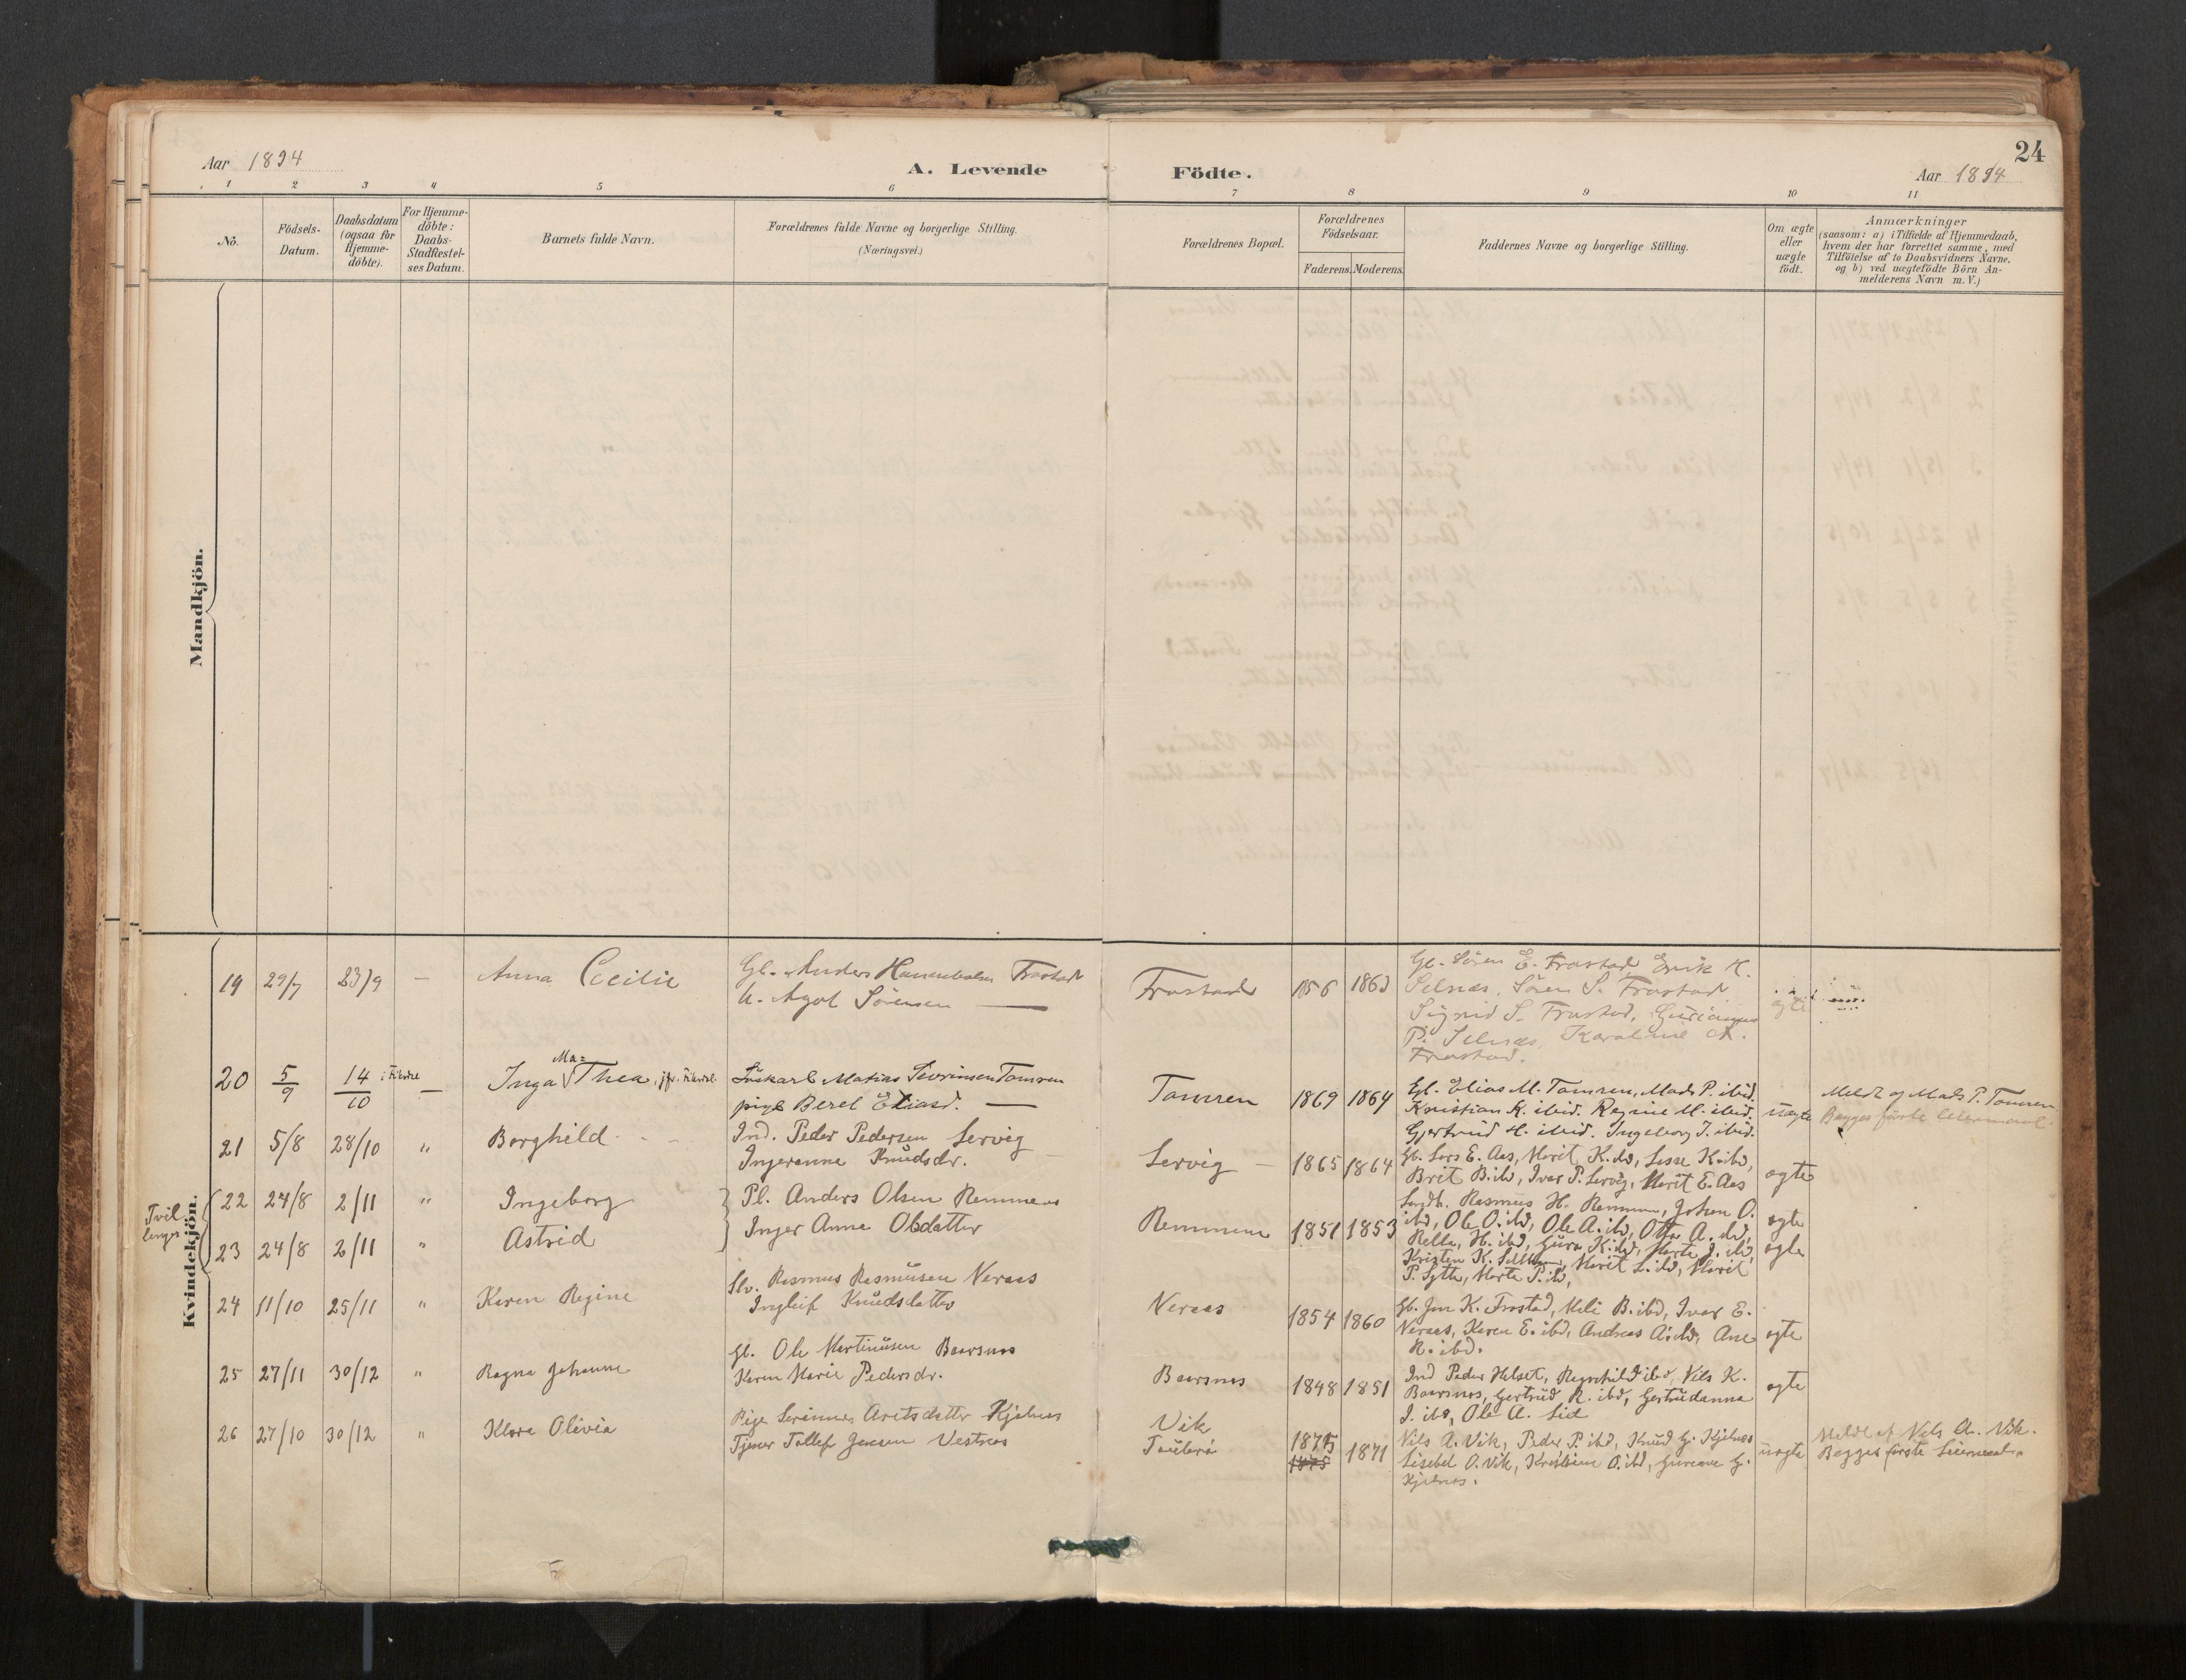 Aar 1894
A. Levende
Födte.
24
Aar 1894
1 2 3 4 5 6 7 8 9 10 11
No.
Födsels-
Datum.
Daabsdatum
(ogsaa for
Hjemme-
döbte).
For Hjemme-
döbte:
Daabs-
Stadfæstel-
ses Datum.
Barnets fulde Navn.
Forældrenes fulde Navne og borgerlige Stilling.
(Næringsvei.)
Forældrenes Bopæl.
Forældrenes
Födselsaar.
Faderens. Moderens.
Faddernes Navne og borgerlige Stilling.
Om ægte
eller
uægte
födt.
Anmærkninger
(saasom: a) i Tilfælde af Hjemmedaab,
hvem der har forrettet samme, med
Tilföielse af to Daabsvidners Navne,
og b) ved uægtefödte Börn An-
melderens Navn m. V.)
Mandkjön.
Kvindekjön.
19 29/7 23/9 — Anna Cecilie
Gb. Anders Frostad
H. Agot Sörensen —
Frostad 1856 1863
Gb. Sören E. Frostad, Erik K.
Selnæs, Sören S. Frostad
Sigrid S. Frostad,
P. Selnæs, Karoline A.
Frostad.
ægte
20 5/9 14/10 — Inga Ma= Thea
Matias Sevrinsen Tomren
pige Beret Eliasd. —
Tomren 1869 1864
Gb. Elias M. Tomren, Mads P. ibid.
Kristian K. ibid. Regine M. ibid.
Gjertrud H. ibid. Ingeborg J. ibid.
uægte
Meldt af Mads P. Tomren
Begges förste leiermaal.
21 5/8 28/10 " Borghild
Ind. Peder Pedersen Servig
Ingeranna Knudsdr.
Servig — 1865 1864
Gb. Lars E. Aas, Marit K. ibd, Lasse K. ibd,
Brit B. ibd, Ivar P. Servig, Marit E. Aas
ægte
Tvil
linger
22 24/8 2/11 " Ingeborg
23 24/8 2/11 " Astrid
Pl. Anders Olsen Remmem
Inger Anna Olsdatter
Remmem 1851 1853
Rasmus H. Remmem, Johan O.
ibd, Ole O. ibd, Ole A. ibd, Otto A. ibd,
H. ibd, Guro K. ibd, Marte J. ibd,
Kristen K. Marit L. ibd, Marit
P. Sylte, Marte P. ibd,
ægte
ægte
24 11/10 25/11 " Karen Regine
Slv. Rasmus Rasmusen Neraas
Knudsdatter
Neraas 1854 1860
Gb. Jon K. Frostad, B. ibd, Ivar E.
Neraas, Karen E. ibd, Andreas A. ibd, Ane
R. ibd.
ægte
25 27/11 30/12 " Ragna Johanne
Gb. Ole Martinusen Baarsnes
Karen Marie Pedersdr.
Baarsnes 1848 1851
Ind Peder Helset, Ragnhild ibd, Nils K.
Baarsnes, Gertrud R. ibd, Gertrudanna
J. ibd, Ole A. Lid
ægte
26 27/10 30/12 " Klara Olivia
Pige Kjelnes
Tjener Tollef Jensen Vestnes
Vik
1875
1875
1871
Nils A. Vik, Peder P. ibd, Knud G. Kjelnes
Lisebet O. Vik, O. ibd, G.
Kjelnes.
uægte
Meldt af Nils A. Vik.
Begges förste Leiermaal